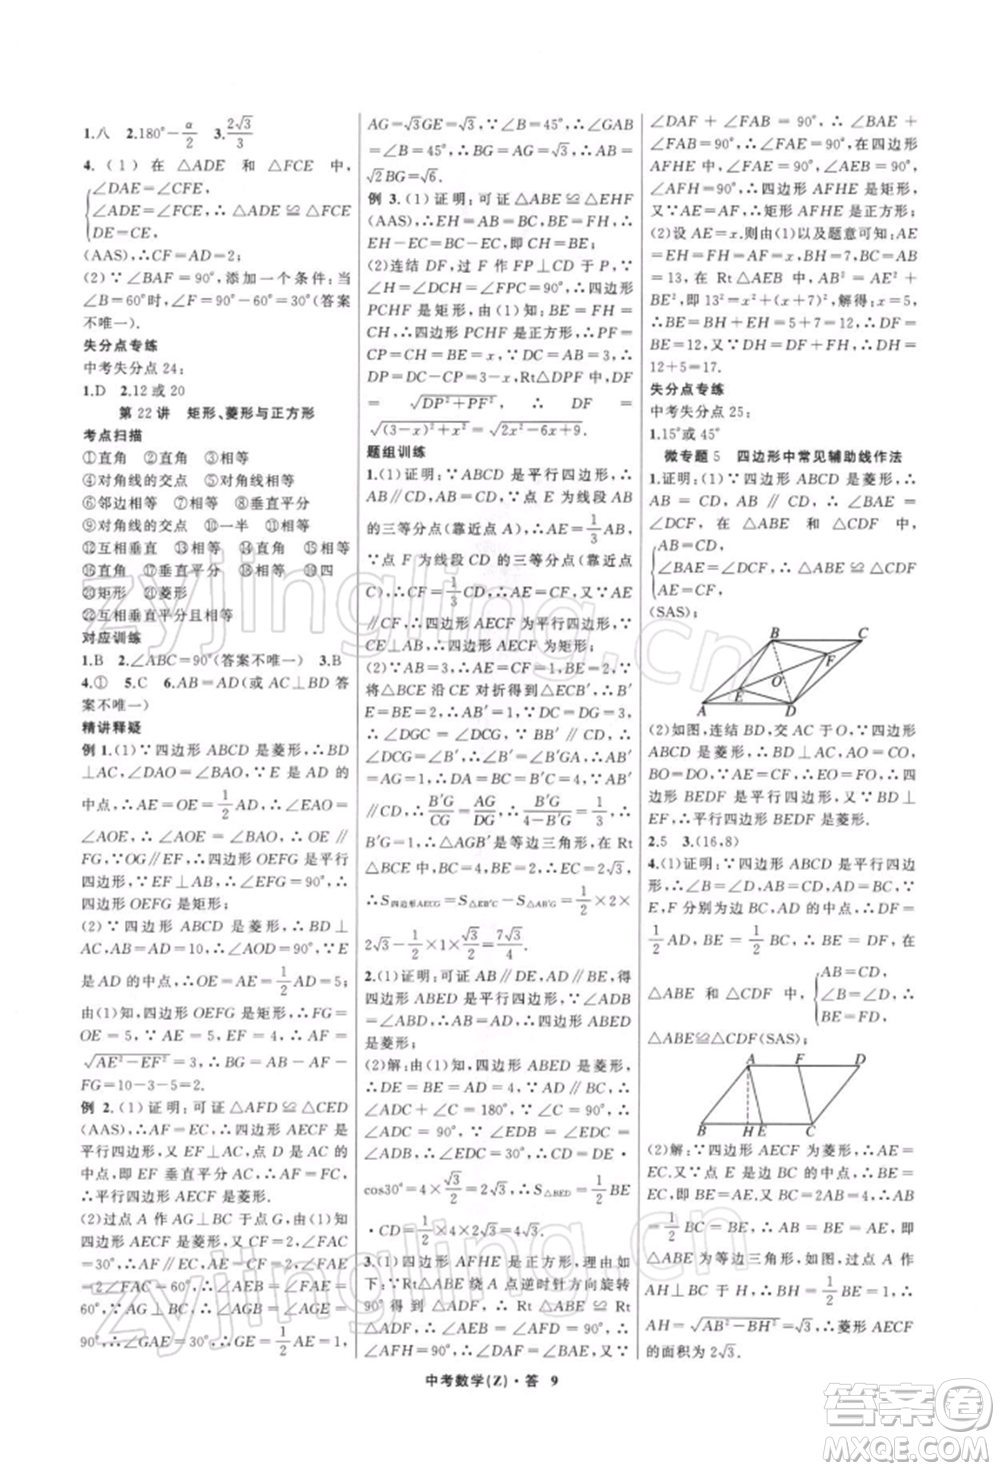 1.八 2.180°-α/2 3.2√3/3
4.(1)在△ADE 和△FCE 中,
{∠DAE=∠CFE,
∠ADE=∠FCE,∴△ADE≌△FCE
DE=CE,
(AAS),∴CF=AD;
(2)∵∠BAF=90°,添加一个条件:当
∠B=60°时,∠F=90°-60°=30°(答案
不唯一).
失分点专练
中考失分点 24:
1.D 2.12 或 20
第 22 讲 矩形、菱形与正方形
考点扫描
①直角 ②直角 ③相等
④对角线的交点 ⑤一组邻边
⑥邻边相等 ⑦相等 ⑧垂直平分
⑨对角线的交点 ⑩一半 ⑪相等
⑫互相垂直 ⑬相等
⑯直角 ⑱相等 ⑲四
⑳矩形 ㉑菱形
㉒互相垂直平分且相等
对应训练
1.B 2.∠ABC=90°(答案不唯一) 3.B
4.① 5.C 6.AB=AD(或 AC⊥BD 答
案不唯一)
精讲释疑
例 1.(1)∵四边形 ABCD 是菱形,∴BD
⊥AC,∠DAO=∠BAO,∵E 是 AD 的
中点,∴AE=OE=1/2AD,∴∠EAO=
∠AOE,∴∠AOE=∠BAO,∴OE∥
FG,∵OG∥EF,∴四边形 OEFG 是平行
四边形,∵EF⊥AB,∴∠EFG=90°,∴
四边形 OEFG 是矩形;
(2)∵四边形 ABCD 是菱形,∴BD⊥
AC,AB=AD=10,∴∠AOD=90°,∵E
是 AD 的中点,∴OE=AE=1/2AD=5;
由(1)知,四边形 OEFG 是矩形,∴FG=
OE=5,∵AE=5,EF=4,∴AF=
√AE²-EF²=3,∴BG=AB-AF-
FG=10-3-5=2.
例 2.(1)证明:可证△AFD≌△CED
(AAS),∴AF=EC,∴四边形 AECF 是平
行四边形,又∵EF⊥AC,点 D 是 AC 的
中点,即 EF 垂直平分 AC,∴AF=FC,
∴平行四边形 AECF 是菱形.
(2)过点 A 作 AG⊥BC 于点 G,由(1)知
四边形 AECF 是菱形,又 CF=2,∠FAC
=30°,∴AF∥EC,AE=CF=2,∠FAE
=2∠FAC=60°,∴∠AEB=∠FAE=
60°,∵AG⊥BC,∴∠AGB=∠AGE=
90°,∴∠GAE=30°,∴GE=1/2AE=1,
AG=√3GE=√3,∵∠B=45°,∴∠GAB
=∠B=45°,∴BG=AG=√3,∴AB=
√2BG=√6.
例 3.(1)证明:可证△ABE≌△EHF
(AAS),∴EH=AB=BC,BE=FH,∴
EH=BC,即 CH=BE,∴CH=FH;
(2)连结 DF,过 F 作 FP⊥CD 于 P,∵
∠H=∠DCH=∠FPC=90°,∴四边形
PCHF 是矩形,由(1)知:BE=FH=
CH,∴四边形 PCHF 是正方形,∴PF=
CP=CH=BE=x,∵DC=AB=3,∴
DP=DC-CP=3-x,Rt△DPF 中,
DF=√DP²+PF²,∴DF=
√(3-x)²+x²=√2x²-6x+9.
题组训练
1.(1)证明:∵ABCD 是平行四边形,∴
AB∥CD,AB=CD,∵点 E 为线段 AB
的三等分点(靠近点 A),∴AE=1/3AB,
∵点 F 为线段 CD 的三等分点(靠近点
C),∴CF=1/3CD,∴AE=CF,又∵AE∥
CF,∴四边形 AECF 为平行四边形,
∵CA=CB,∴四边形 AECF 为矩形;
(2)∵AB=3,∴AE=CF=1,BE=2,∵
将∠B沿 CE 对折得到△ECB′,∴B′E
=∠DGC=∠B′,∵BB′=∠B′GA
∴∠DGC=∠B′,∴DC=CG=3,
∴AG=1,∵DA=B′C=4,∵AB′
∥CD,∴B′G/CG=AG/DG,∴B′G/(4-B′G)=1/3,∴
B′G=1,∴△AGB′是等边三角形,在 Rt
△BCE 中,BC=4,BE=2,∴EC=2√3,
∴S四边形AECG=S△EB′C-S△AB′G=1/2×2×
2√3-1/2×1×√3/2=7√3/4.
2.(1)证明:可证 AB∥DE,AD∥BE,得
四边形 ABED 是平行四边形,∵∠ADB
=∠ABD,∴AD=AB,∴四边形 ABED
是菱形;
(2)解:由(1)知,四边形 ABED 是菱形,
∴DE=BE=AD=4,∵AD∥BC,∴
∠ADC+∠C=180°,∵∠ADC=90°,∴
∠C=90°,∵∠EDB=∠EBD,∠DEC=
60°,∴∠EDC=30°,∴CD=DE·
cos30°=4×√3/2=2√3,∴S△BED=1/2BE
·CD=1/2×4×2√3=4√3.
3.(1)四边形 AFHE 是正方形,理由如
下:∵Rt△ABE 绕 A 点逆时针方向旋转
90°得到△ADF,∴Rt△ABE≌Rt
△ADF,∴∠AEB=∠AFD=90°,∴
∠AFH=90°,∵Rt△ABE≌Rt
∠DAF+∠FAB=90°,∴∠BAE+
∠FAB=90°,∴∠FAE=90°,在四边形
AFHE 中,∠FAE=90°,∠AEB=90°,
∠AFH=90°,∴四边形 AFHE 是矩形,
又∵AE=AF,∴矩形 AFHE 是正方形;
(2)设 AE=x.则由(1)以及题意可知:AE
=EH=FH=AF=x,BH=7,BC=AB
=13,在 Rt△AEB 中,AB²=AE²+
BE²,即 13²=x²+(x+7)²,解得:x=5,
∴BE=BH+EH=5+7=12,∴DF=
BE=12,又∵DH=DF+FH,∴DH=
12+5=17.
失分点专练
中考失分点 25:
1.15°或 45°
微专题 5 四边形中常见辅助线作法
1.证明:(1)∵四边形 ABCD 是菱形,∴
AB=CD,AB∥CD,∴∠BAE=
∠DCF,在△ABE 和△DCF 中,
{AB=CD,
∠BAE=∠DCF,∴△ABE≌△DCF
AE=CF,
(SAS);
B C
F
O
E
A D
(2)如图,连结 BD,交 AC 于 O,∵四边形
ABCD 是菱形,∴BD⊥AC,AO=CO,
BO=DO,∵AE=CF,∴EO=FO,∴四
边形 BEDF 是平行四边形,又∵BD⊥
EF,∴平行四边形 BEDF 是菱形.
2.5 3.(16,8)
4.(1)证明:∵四边形 ABCD 是平行四边
形,∴AB=CD,BC=AD,∠B=∠D,∵
E,F 分别为 BC,AD 的中点,∴BE=
1/2BC,DF=1/2AD,∴BE=DF,在
△ABE 和△CDF 中,{AB=CD, ∠B=∠D, BE=FD,∴
△ABE≌△CDF(SAS);
A F D
B H E C
(2)解:∵四边形 AECF 是菱形,∴AE=
EC,∵点 E 是边 BC 的中点,∴BE=EC
=1/2BC=2,∴BE=AE=AB=2,即
△ABE 为等边三角形,过点 A 作
AH⊥BC 于 H,∴BH=1/2BE=1,∴
AH=√AB²-BH²=√3,∴菱形 AECF
的面积为 2√3.
中考数学(Z)·答 9
zyjingling.cn
zyjingling.cn
答案圈
MXQE.COM